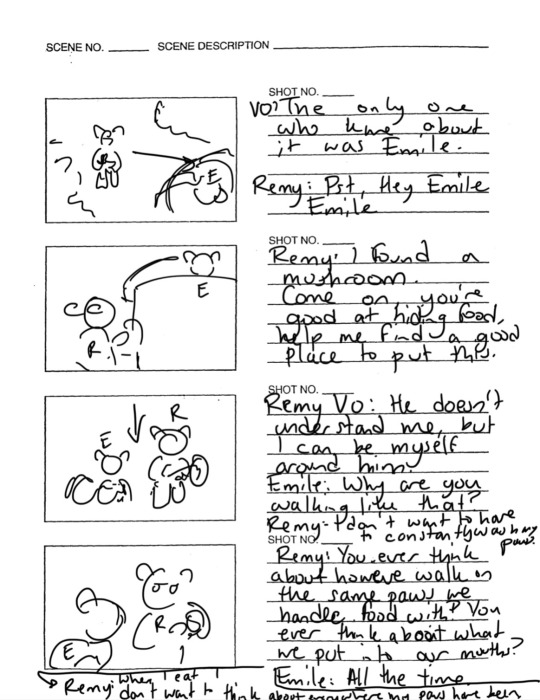 SCENE NO. SCENE DESCRIPTION
SHOT NO.
VO: The only one
who knew about
it was Emile.
Remy: Pst, Hey Emile
Emile
E
R
SHOT NO.
Remy: I found a
mushroom.
Come on, you're
good at hiding food,
help me find a good
place to put this.
E
R
SHOT NO.
Remy VO: He doesn't
understand me, but
I can be myself
around him.
Emile: Why are you
walking like that?
Remy: I don't want to have
to constantly wash my
paws.
R
E
SHOT NO.
Remy: You ever think
about how we walk on
the same paws we
handle food with? You
ever think about what
we put into our mouths?
Emile: All the time
E
R
Remy: When I eat I
don't want to think about everywhere my paws have been